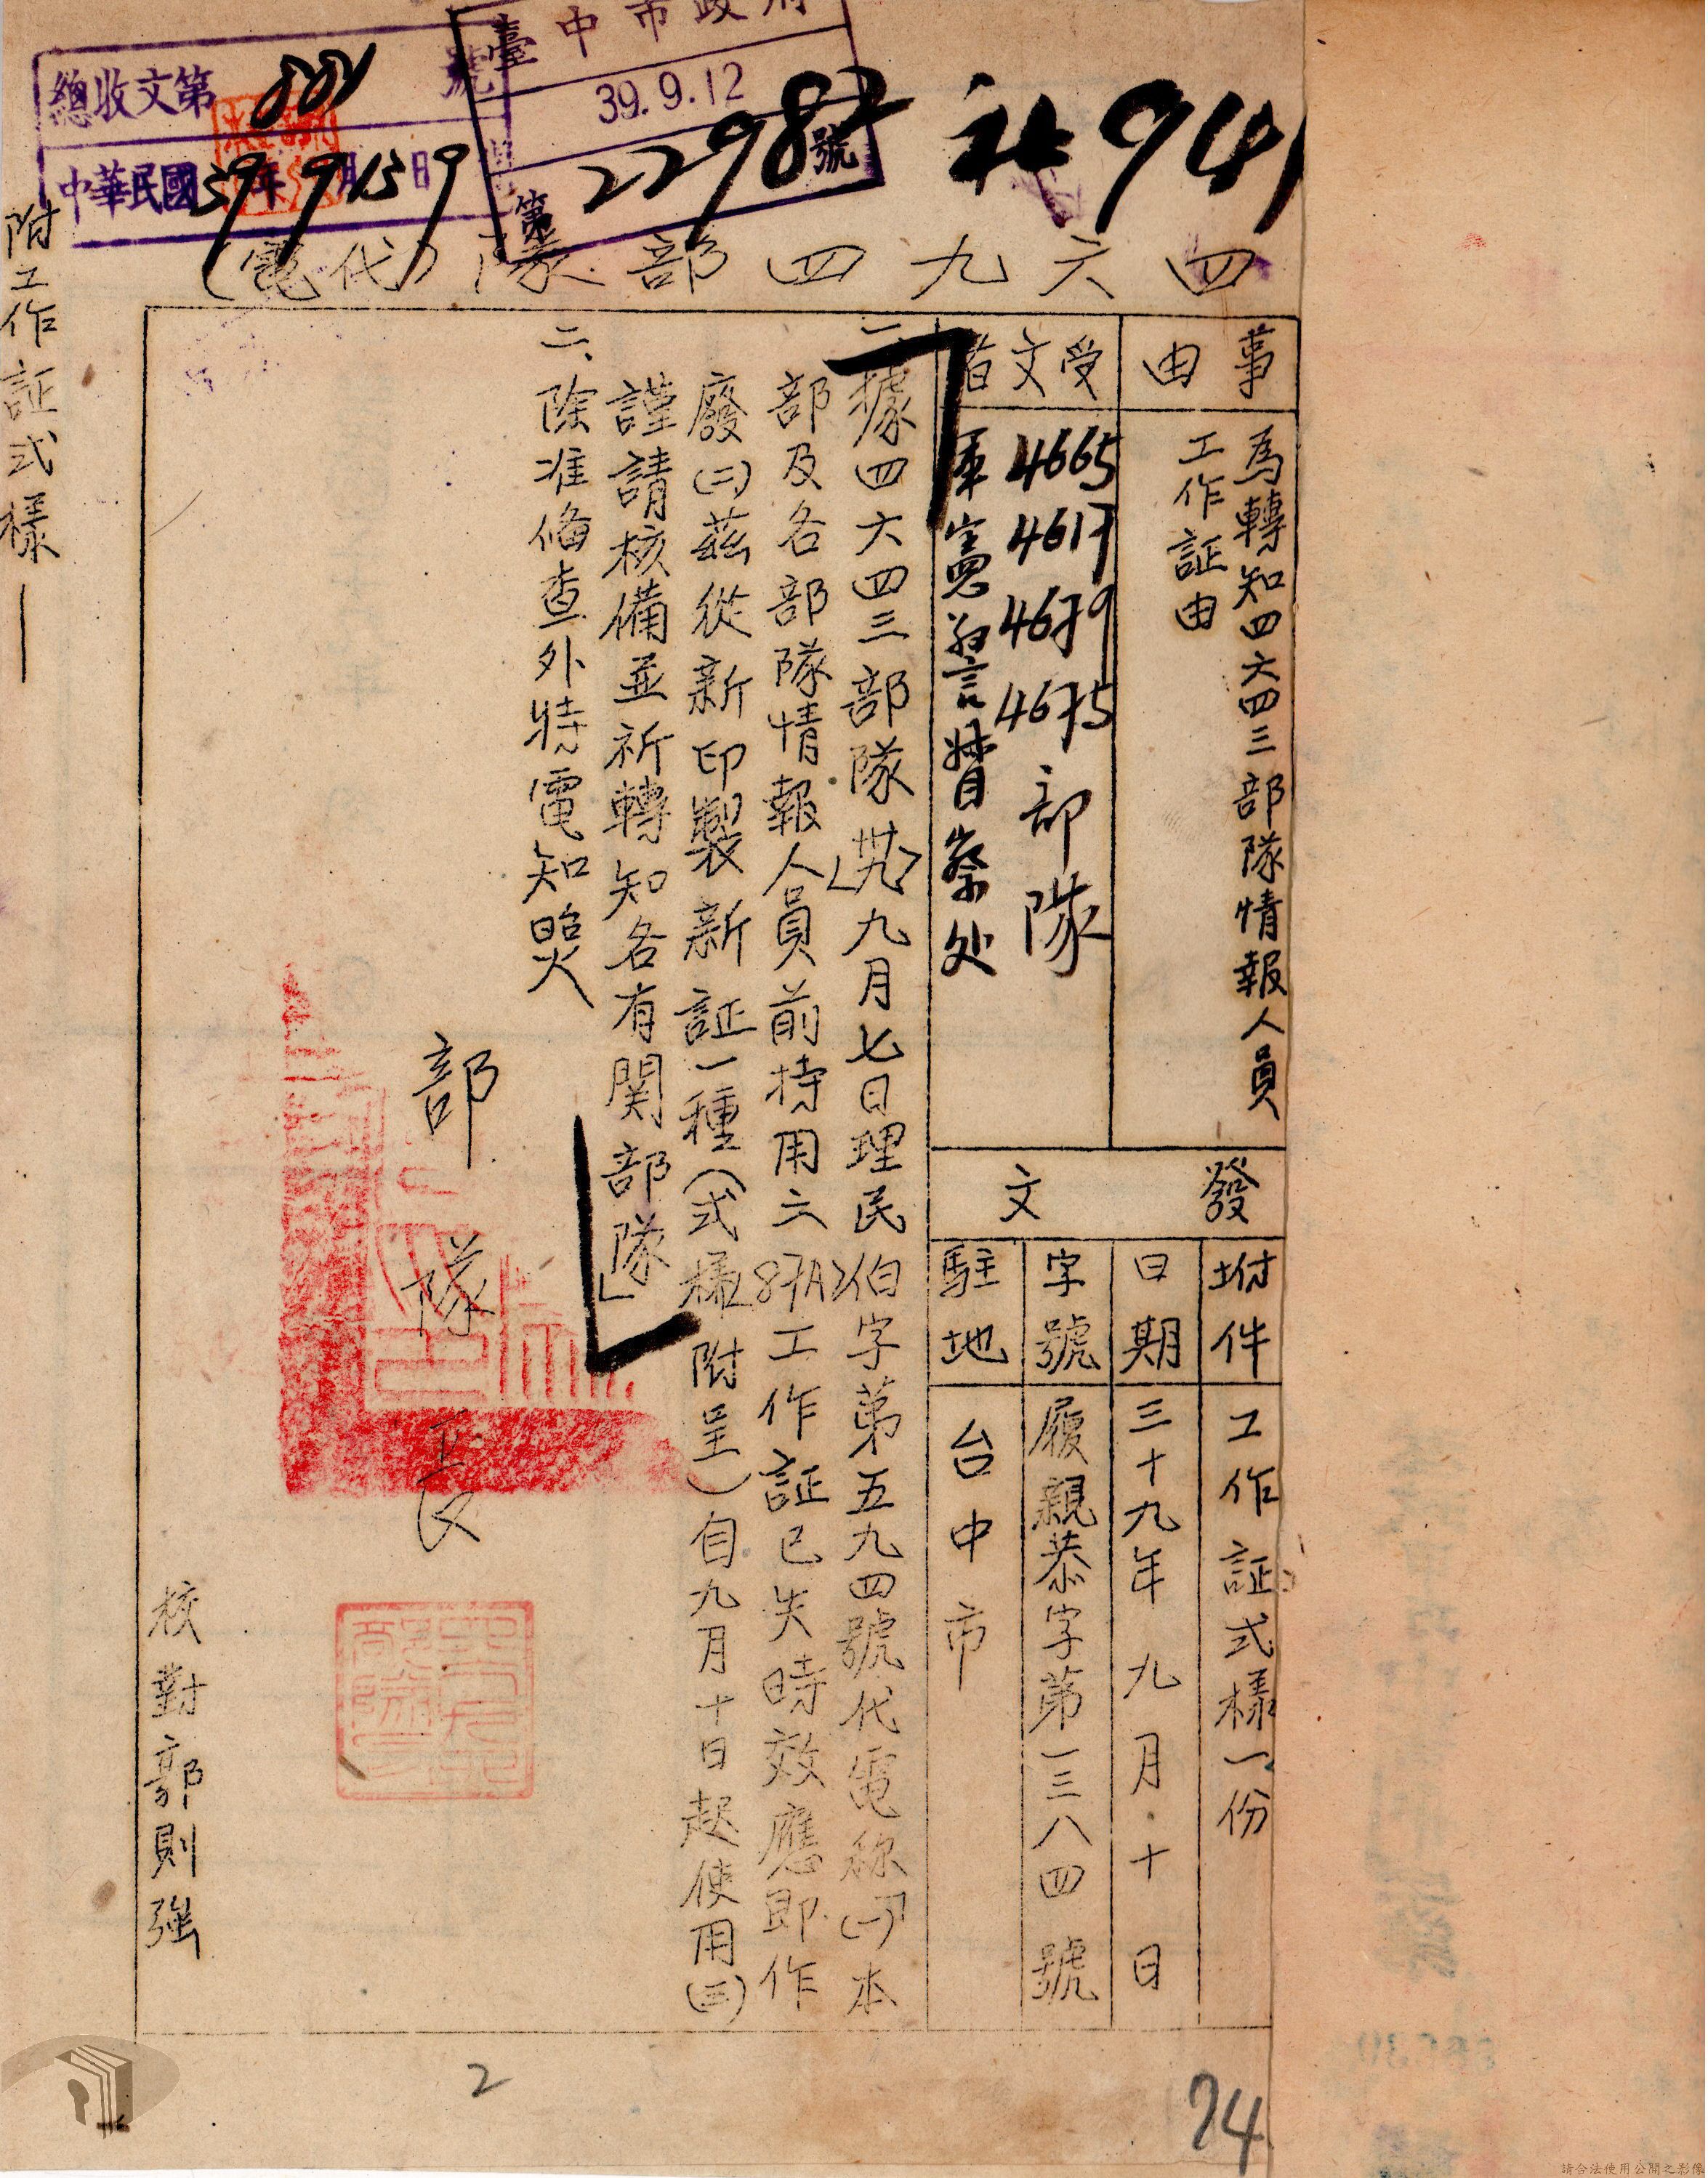 臺中市政府
39.9.12
第22982號
總收文第881號
中華民國39年9月13日9
社941
四六九四部隊(代電)
事由
為轉知四六四三部隊情報人員
工作証由
受文者
4665
4617
4679
4675
部隊
軍憲警督察处
發文
附件
工作証式樣一份
日期
三十九年九月十日
字號
履親恭字第一三八四號
駐地
台中市
一、據四六四三部隊<卅九>九月七日理民伯字第五九四號代電称「(一)本
部及各部隊情報人員前持用之87A工作証已失時效應即作
廢(二)茲從新印製新証一種(式樣附呈)自九月十日起使用(三)
謹請核備並祈轉知各有関部隊」
二、除准備查外特電知照
部隊長
核對郭則強
附工作証式樣一
2
74
請合法使用公開之影像